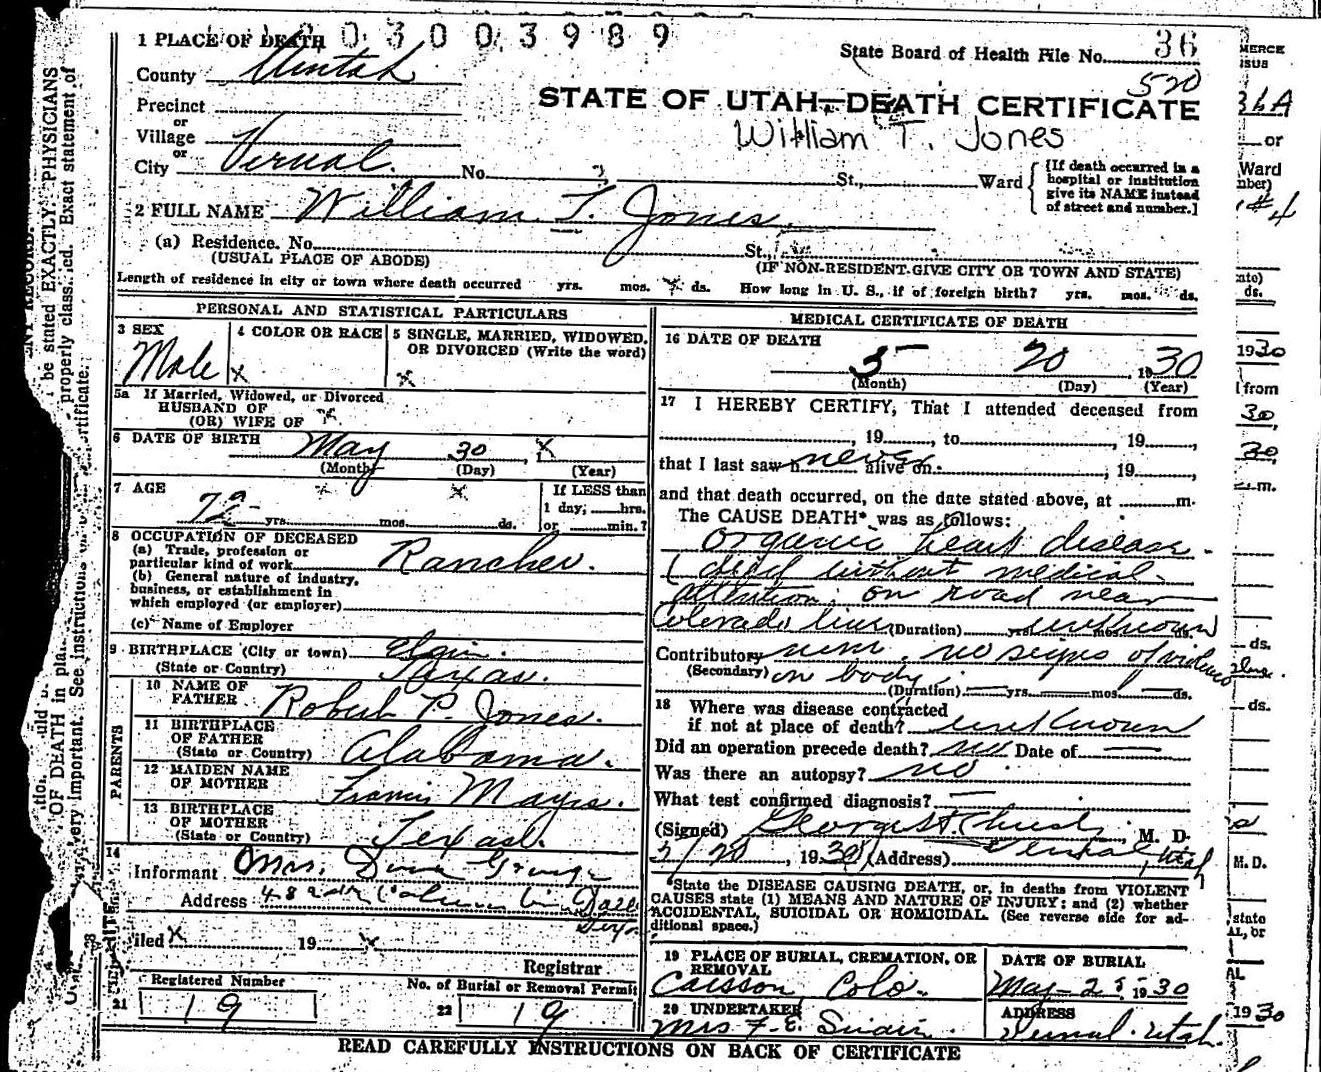 1 PLACE OF DEATH
03003989
State Board of Health File No. 36
County Uintah
520
STATE OF UTAH—DEATH CERTIFICATE
Precinct
or
William T. Jones
Village
or
City Vernal. No. St., Ward
[If death occurred in a
hospital or institution
give its NAME instead
of street and number.]
2 FULL NAME William T. Jones
(a) Residence. No. St.,
(USUAL PLACE OF ABODE) (IF NON-RESIDENT GIVE CITY OR TOWN AND STATE)
Length of residence in city or town where death occurred yrs. mos. ds. How long in U. S., if of foreign birth? yrs. mos. ds.
PERSONAL AND STATISTICAL PARTICULARS
3 SEX
Male
4 COLOR OR RACE
x
5 SINGLE, MARRIED, WIDOWED,
OR DIVORCED (Write the word)
x
5a If Married, Widowed, or Divorced
HUSBAND OF
(OR) WIFE OF x
6 DATE OF BIRTH May 30, x
(Month) (Day) (Year)
7 AGE
72 yrs. mos. ds.
If LESS than
1 day, hrs.
or min.?
8 OCCUPATION OF DECEASED
(a) Trade, profession or
particular kind of work Rancher.
(b) General nature of industry,
business, or establishment in
which employed (or employer)
(c) Name of Employer
9 BIRTHPLACE (City or town) Elgin
(State or Country) Texas.
PARENTS
10 NAME OF
FATHER Robert P. Jones.
11 BIRTHPLACE
OF FATHER
(State or Country) Alabama.
12 MAIDEN NAME
OF MOTHER Francis Mays.
13 BIRTHPLACE
OF MOTHER
(State or Country) Texas.
14
Informant Mrs.
Address
Filed x 19 x
Registrar
Registered Number
21 19
No. of Burial or Removal Permit
22 19
MEDICAL CERTIFICATE OF DEATH
16 DATE OF DEATH
5 20, 1930
(Month) (Day) (Year)
17 I HEREBY CERTIFY, That I attended deceased from
, 19, to , 19,
that I last saw h never alive on , 19
and that death occurred, on the date stated above, at m.
The CAUSE DEATH* was as follows:
Organic heart disease.
(died without medical
attention. on road near
Colorado line (Duration) yrs. unknown mos. ds.
Contributory none. no signs of violence
(Secondary) on body.
(Duration) yrs. mos. ds.
18 Where was disease contracted
if not at place of death? unknown
Did an operation precede death? no Date of
Was there an autopsy? no
What test confirmed diagnosis? —
(Signed) George H. M. D.
5/20, 1930 (Address) Vernal, Utah
*State the DISEASE CAUSING DEATH, or, in deaths from VIOLENT
CAUSES state (1) MEANS AND NATURE OF INJURY; and (2) whether
ACCIDENTAL, SUICIDAL OR HOMICIDAL. (See reverse side for ad-
ditional space.)
19 PLACE OF BURIAL, CREMATION, OR
REMOVAL
Colo.
DATE OF BURIAL
May 25, 1930
20 UNDERTAKER
Mrs F. E.
ADDRESS
Vernal. Utah.
READ CAREFULLY INSTRUCTIONS ON BACK OF CERTIFICATE